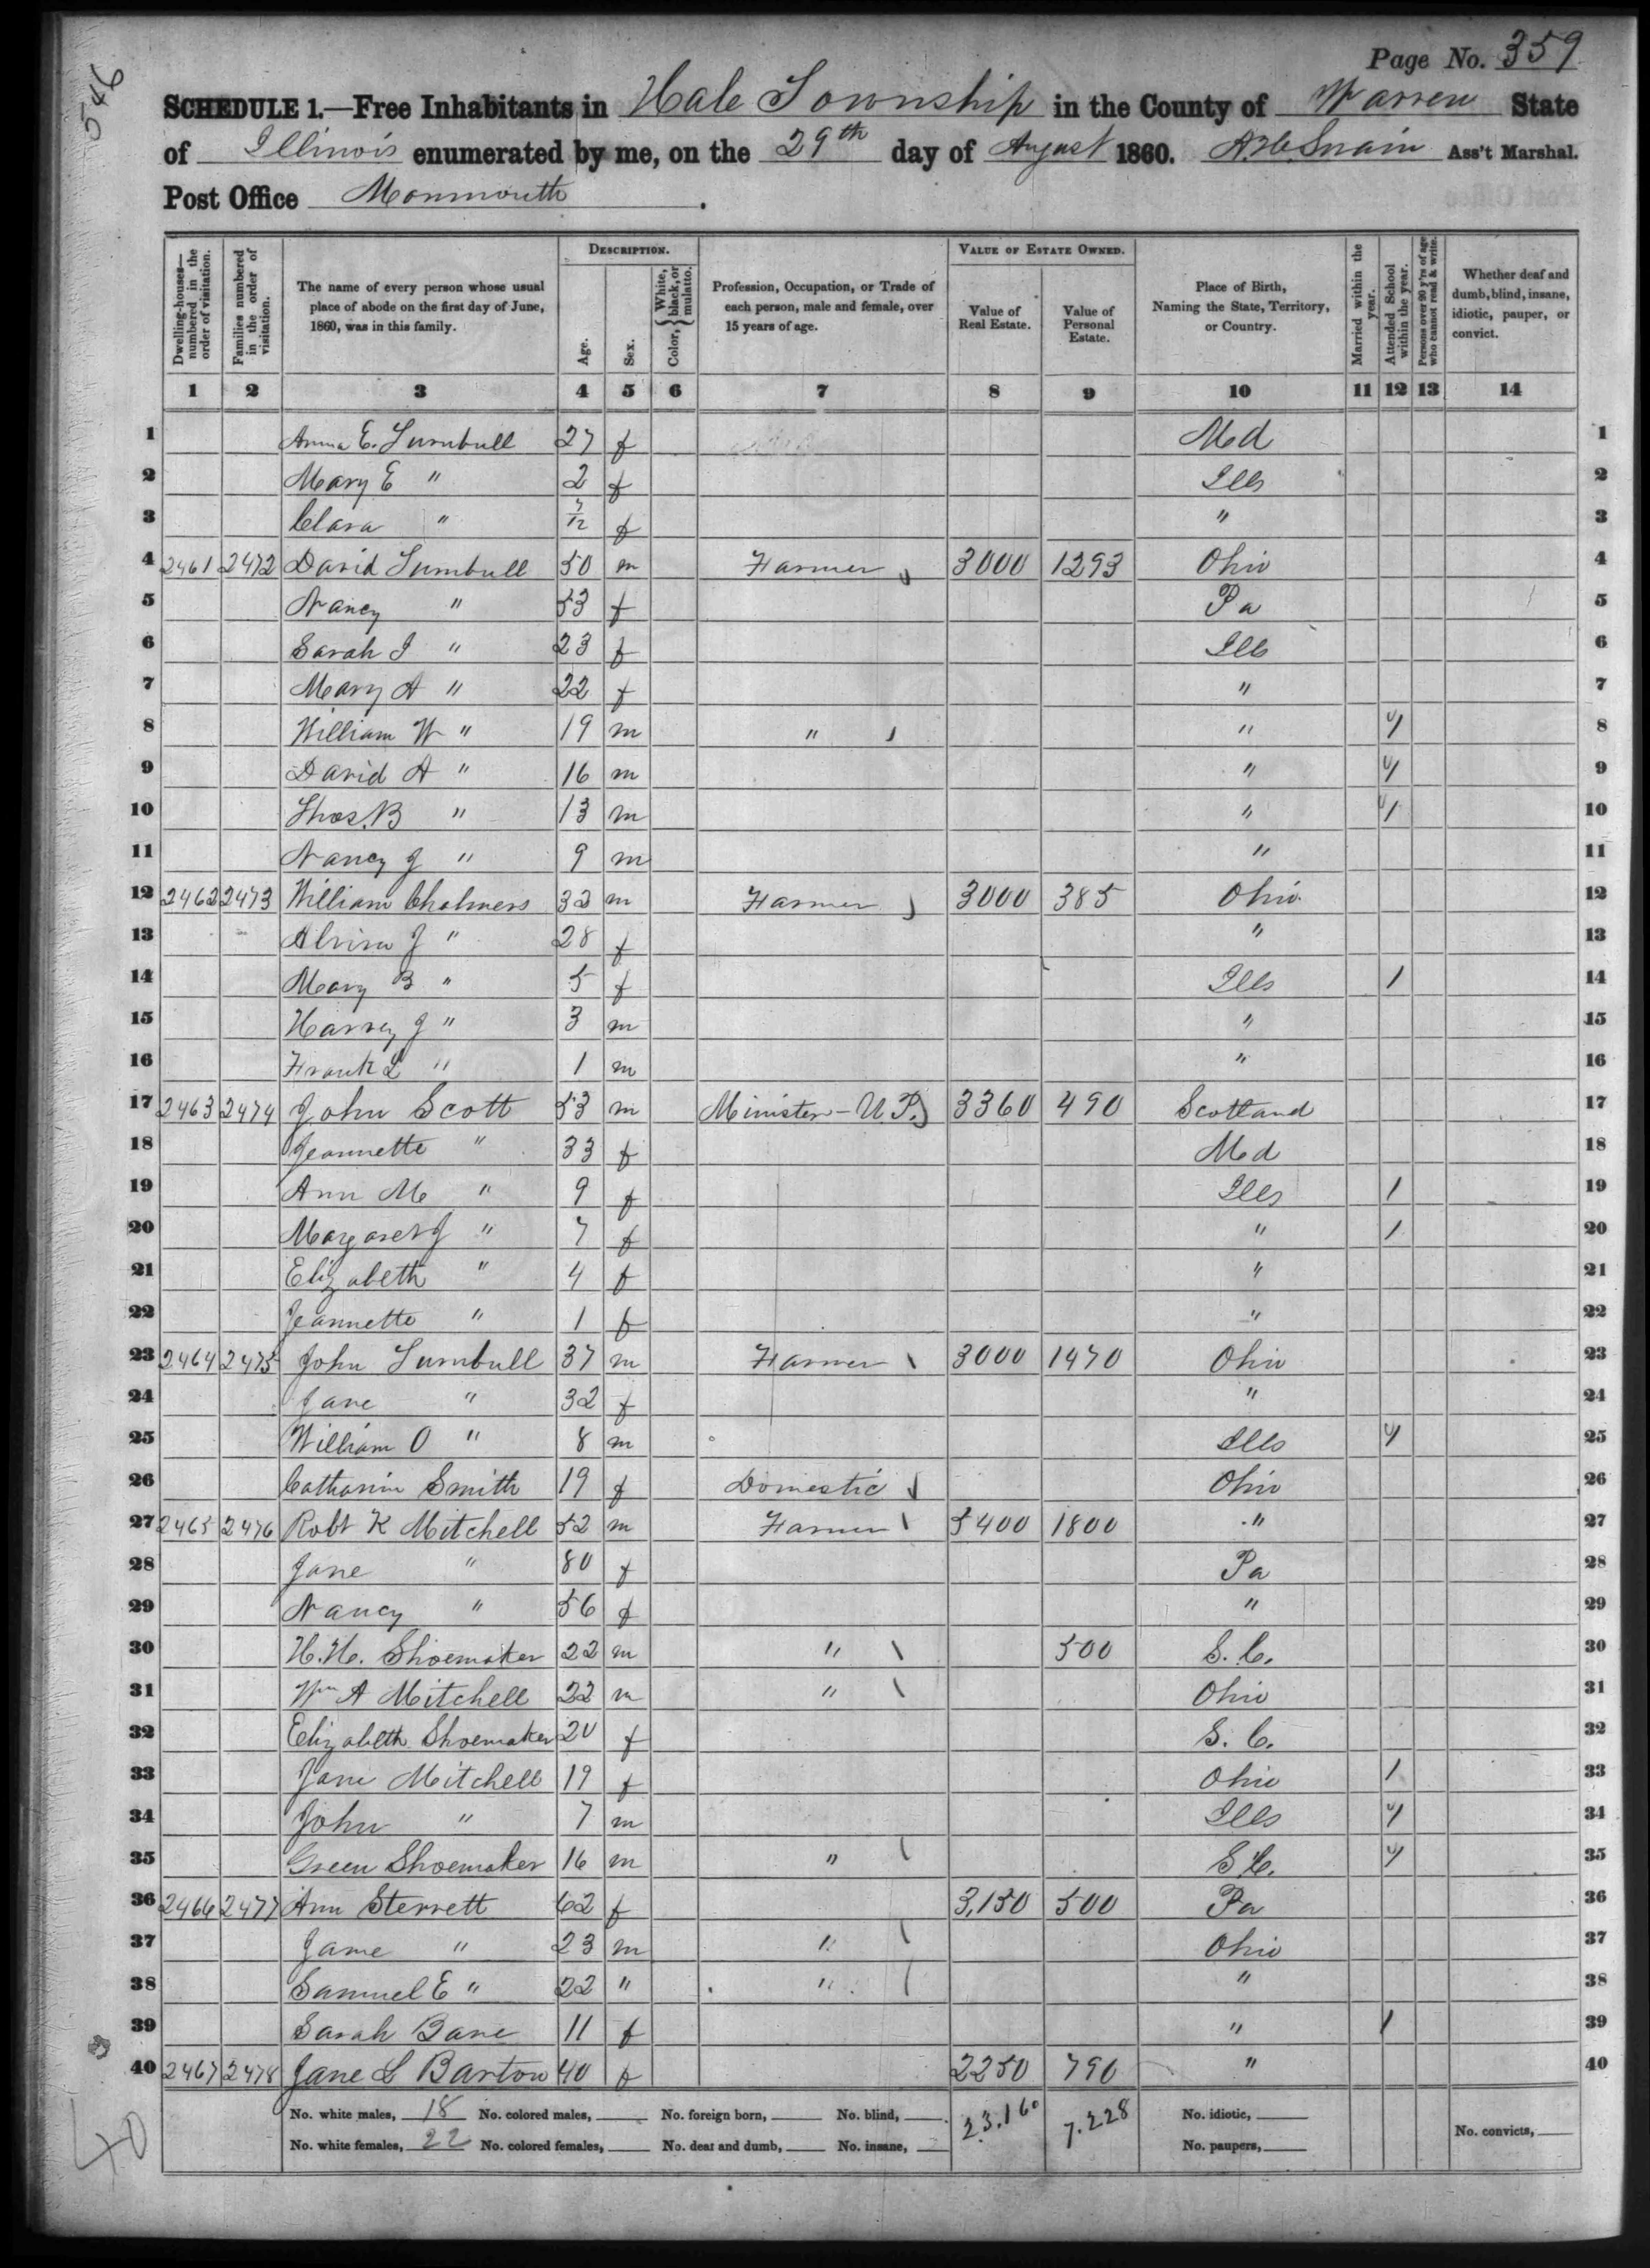 546
Page No. 359
SCHEDULE 1.—Free Inhabitants in Hale Township in the County of Warren State
of Illinois enumerated by me, on the 29th day of August 1860. Ass't Marshal.
Post Office Monmouth.
Dwelling-houses—numbered in the order of visitation. Families numbered in the order of visitation. The name of every person whose usual place of abode on the first day of June, 1860, was in this family. DESCRIPTION. Age. Sex. Color, { White, black, or mulatto. Profession, Occupation, or Trade of each person, male and female, over 15 years of age. VALUE OF ESTATE OWNED. Value of Real Estate. Value of Personal Estate. Place of Birth, Naming the State, Territory, or Country. Married within the year. Attended School within the year. Persons over 20 y'rs of age who cannot read & write. Whether deaf and dumb, blind, insane, idiotic, pauper, or convict.
1 2 3 4 5 6 7 8 9 10 11 12 13 14
1 Anna E. Turnbull 27 f Md 1
2 Mary E " 2 f Ills 2
3 Clara " 7/12 f " 3
4 2461 2472 David Turnbull 50 m Farmer 3000 1293 Ohio 4
5 Nancy " 53 f Pa 5
6 Sarah J " 23 f Ills 6
7 Mary A " 22 f " 7
8 William W " 19 m " " / 8
9 David A " 16 m " / 9
10 Thos. B " 13 m " / 10
11 Nancy J " 9 m " 11
12 2462 2473 William Chalmers 32 m Farmer 3000 385 Ohio 12
13 Alvira J " 28 f " 13
14 Mary B " 5 f Ills / 14
15 Harvey J " 3 m " 15
16 Frank L " 1 m " 16
17 2463 2474 John Scott 53 m Minister - U.P. 3360 490 Scotland 17
18 Jeannette " 33 f Md 18
19 Ann M " 9 f Ills / 19
20 Margaret J " 7 f " / 20
21 Elizabeth " 4 f " 21
22 Jeannette " 1 f " 22
23 2464 2475 John Turnbull 37 m Farmer 3000 1470 Ohio 23
24 Jane " 32 f " 24
25 William O " 8 m Ills / 25
26 Catharine Smith 19 f Domestic Ohio 26
27 2465 2476 Robt K Mitchell 52 m Farmer 5400 1800 " 27
28 Jane " 80 f Pa 28
29 Nancy " 56 f " 29
30 H. H. Shoemaker 22 m " 500 S. C. 30
31 Wm A Mitchell 22 m " Ohio 31
32 Elizabeth Shoemaker 20 f S. C. 32
33 Jane Mitchell 19 f Ohio / 33
34 John " 7 m Ills / 34
35 Green Shoemaker 16 m " S C. / 35
36 2466 2477 Ann Sterrett 62 f 3,150 500 Pa 36
37 Jame " 23 m " Ohio 37
38 Samuel E " 22 " " " 38
39 Sarah Bane 11 f " / 39
40 2467 2478 Jane L Barton 40 f 2250 790 " 40
No. white males, 18 No. colored males, No. foreign born, No. blind, 23.160 7.228 No. idiotic,
No. white females, 22 No. colored females, No. deaf and dumb, No. insane, No. paupers, No. convicts,
40